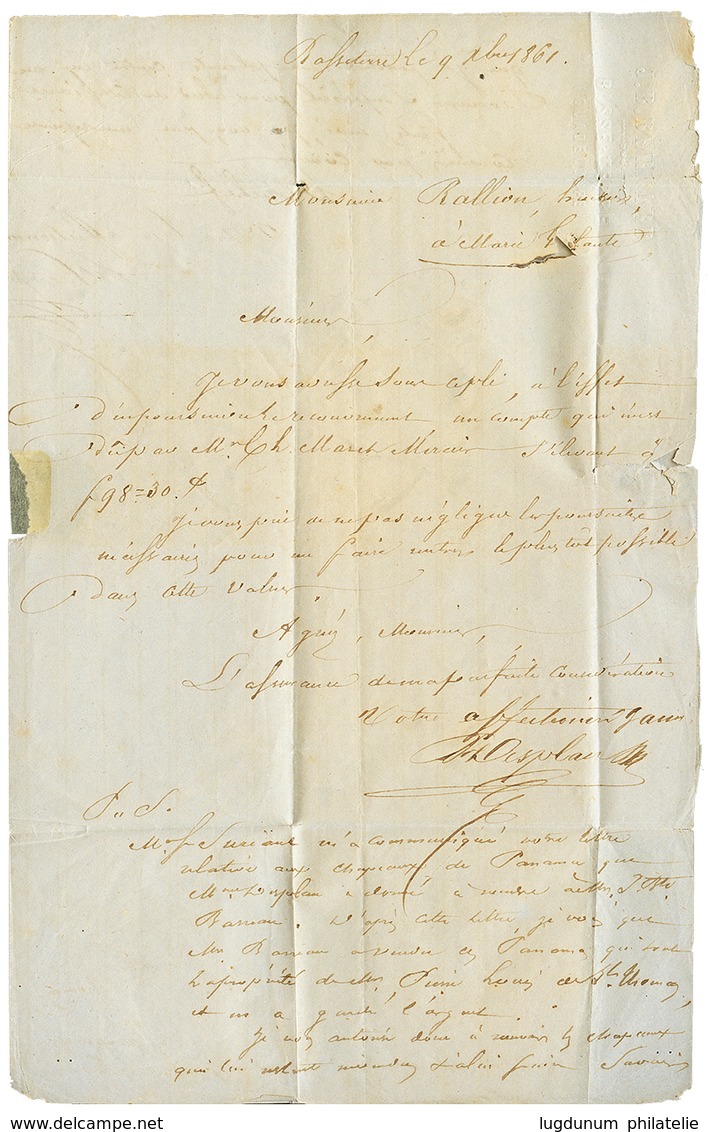 Basseterre le 9 Xbre 1861.
Monsieur Rallion, huissier,
à Marie Galante
Monsieur
Je vous adresse sous ce pli, à l'effet
d'en poursuivre le recouvrement un compte qui m'est
dû par Mr Ch. Maret Mercier s'élevant à
f 98=30.
Je vous prie de ne pas négliger les poursuites
nécessaires pour me faire rentrer le plus tôt possible
dans cette valeur.
Agréez, Monsieur,
L'assurance de ma parfaite considération
Votre affectionné
Desplan
P.. S.
Mr m'a communiqué votre lettre
relative aux chapeaux de Panama que
Mme Desplan a donné à vendre à Mr
Barreau. D'après cette lettre, je vois que
Mr Barreau a vendu ces Panamas qui sont
la propriété de Mr Pierre Louis de St Thomas,
et en a gardé l'argent.
Je vous autorise donc à les chapeaux
qui lui restent faire
lugdunum philatelie